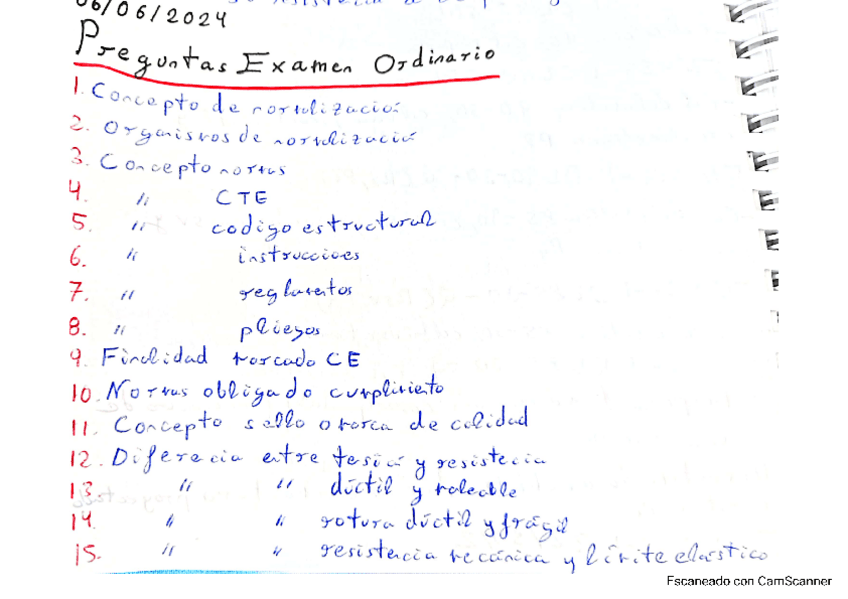 06/06/2024
Preguntas Examen Ordinario
1. Concepto de normalización
2. Organismos de normalización
3. Concepto normas
4. " CTE
5. " codigo estructural
6. " instrucciones
7. " reglamentos
8. " pliegos
9. Finalidad marcado CE
10. Normas obligado cumplimiento
11. Concepto sello o marca de calidad
12. Diferencia entre tensión y resistencia
13. " " dúctil y maleable
14. " " rotura dúctil y frágil
15. " " resistencia mecánica y límite elástico
Escaneado con CamScanner